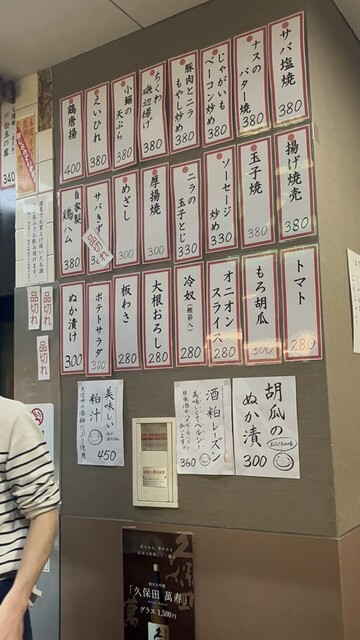 サバ塩焼
380
ナスの
バター焼
380
じゃがいも
ベーコン炒め
380
豚肉とニラ
もやし炒め
380
ちくわ
磯辺揚げ
380
小鯵の
天ぷら
380
えいひれ
380
鶏唐揚
400
揚げ焼売
380
玉子焼
380
ソーセージ
炒め
330
ニラの
玉子とじ
330
厚揚焼
300
めざし
300
サバきずし
品切れ
380
自家製
鶏ハム
380
トマト
280
もろ胡瓜
300
オニオン
スライス
280
冷奴
280
大根おろし
280
板わさ
280
ポテトサラダ
300
ぬか漬け
300
品切れ
品切れ
品切れ
胡瓜の
ぬか漬
300
酒粕レーズン
美味しくてヘルシー!
360
美味しい
粕汁
450
340
「久保田 萬寿」
グラス 1,500円